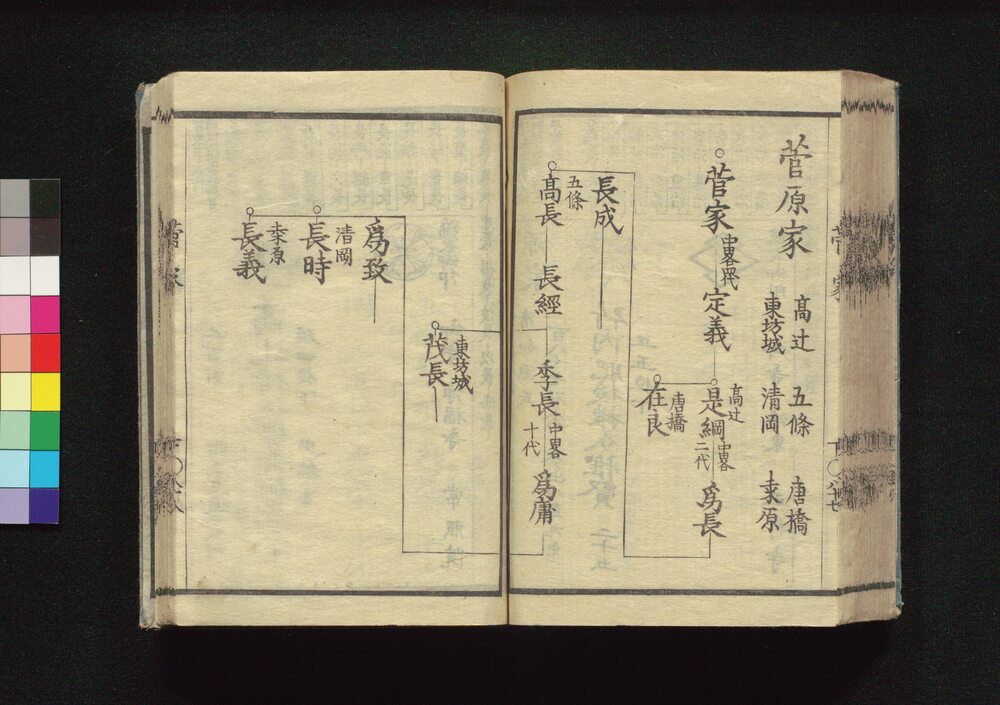 菅原家
髙辻 五條 唐橋
東坊城 清岡 桒原
菅家 中畧四代 定義
髙辻
是綱 中畧二代 為長
唐橋
在良
長成
五條
髙長 長經 季長 中畧十代 為庸
東坊城
茂長
為致
清岡
長時
桒原
長義
菅家